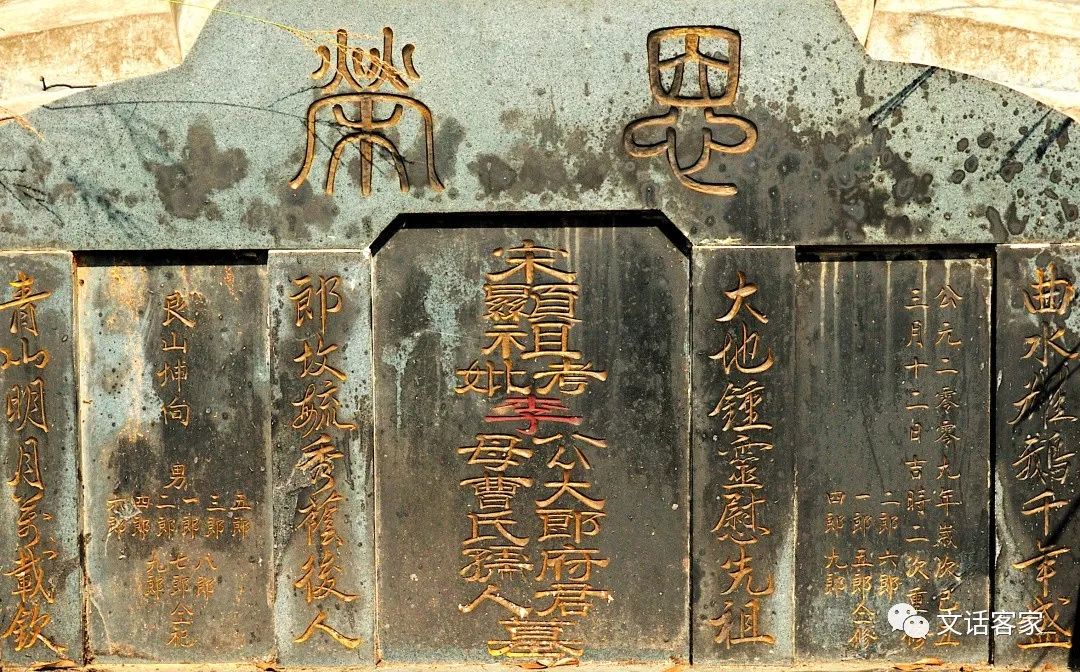 恩榮
曲水雄鵝千年盛
公元二零零九年歲次己丑
三月十二日吉時二次重修
二郎六郎
一郎五郎仝修
四郎九郎
大地鍾靈慰先祖
宋顯祖考妣李公大郎府君母曹氏孺人墓
郎故毓秀蔭後人
艮山坤向
男
五郎
三郎八郎
一郎七郎仝祀
二郎九郎
四郎
六郎
青山明月萬載欽
文话客家